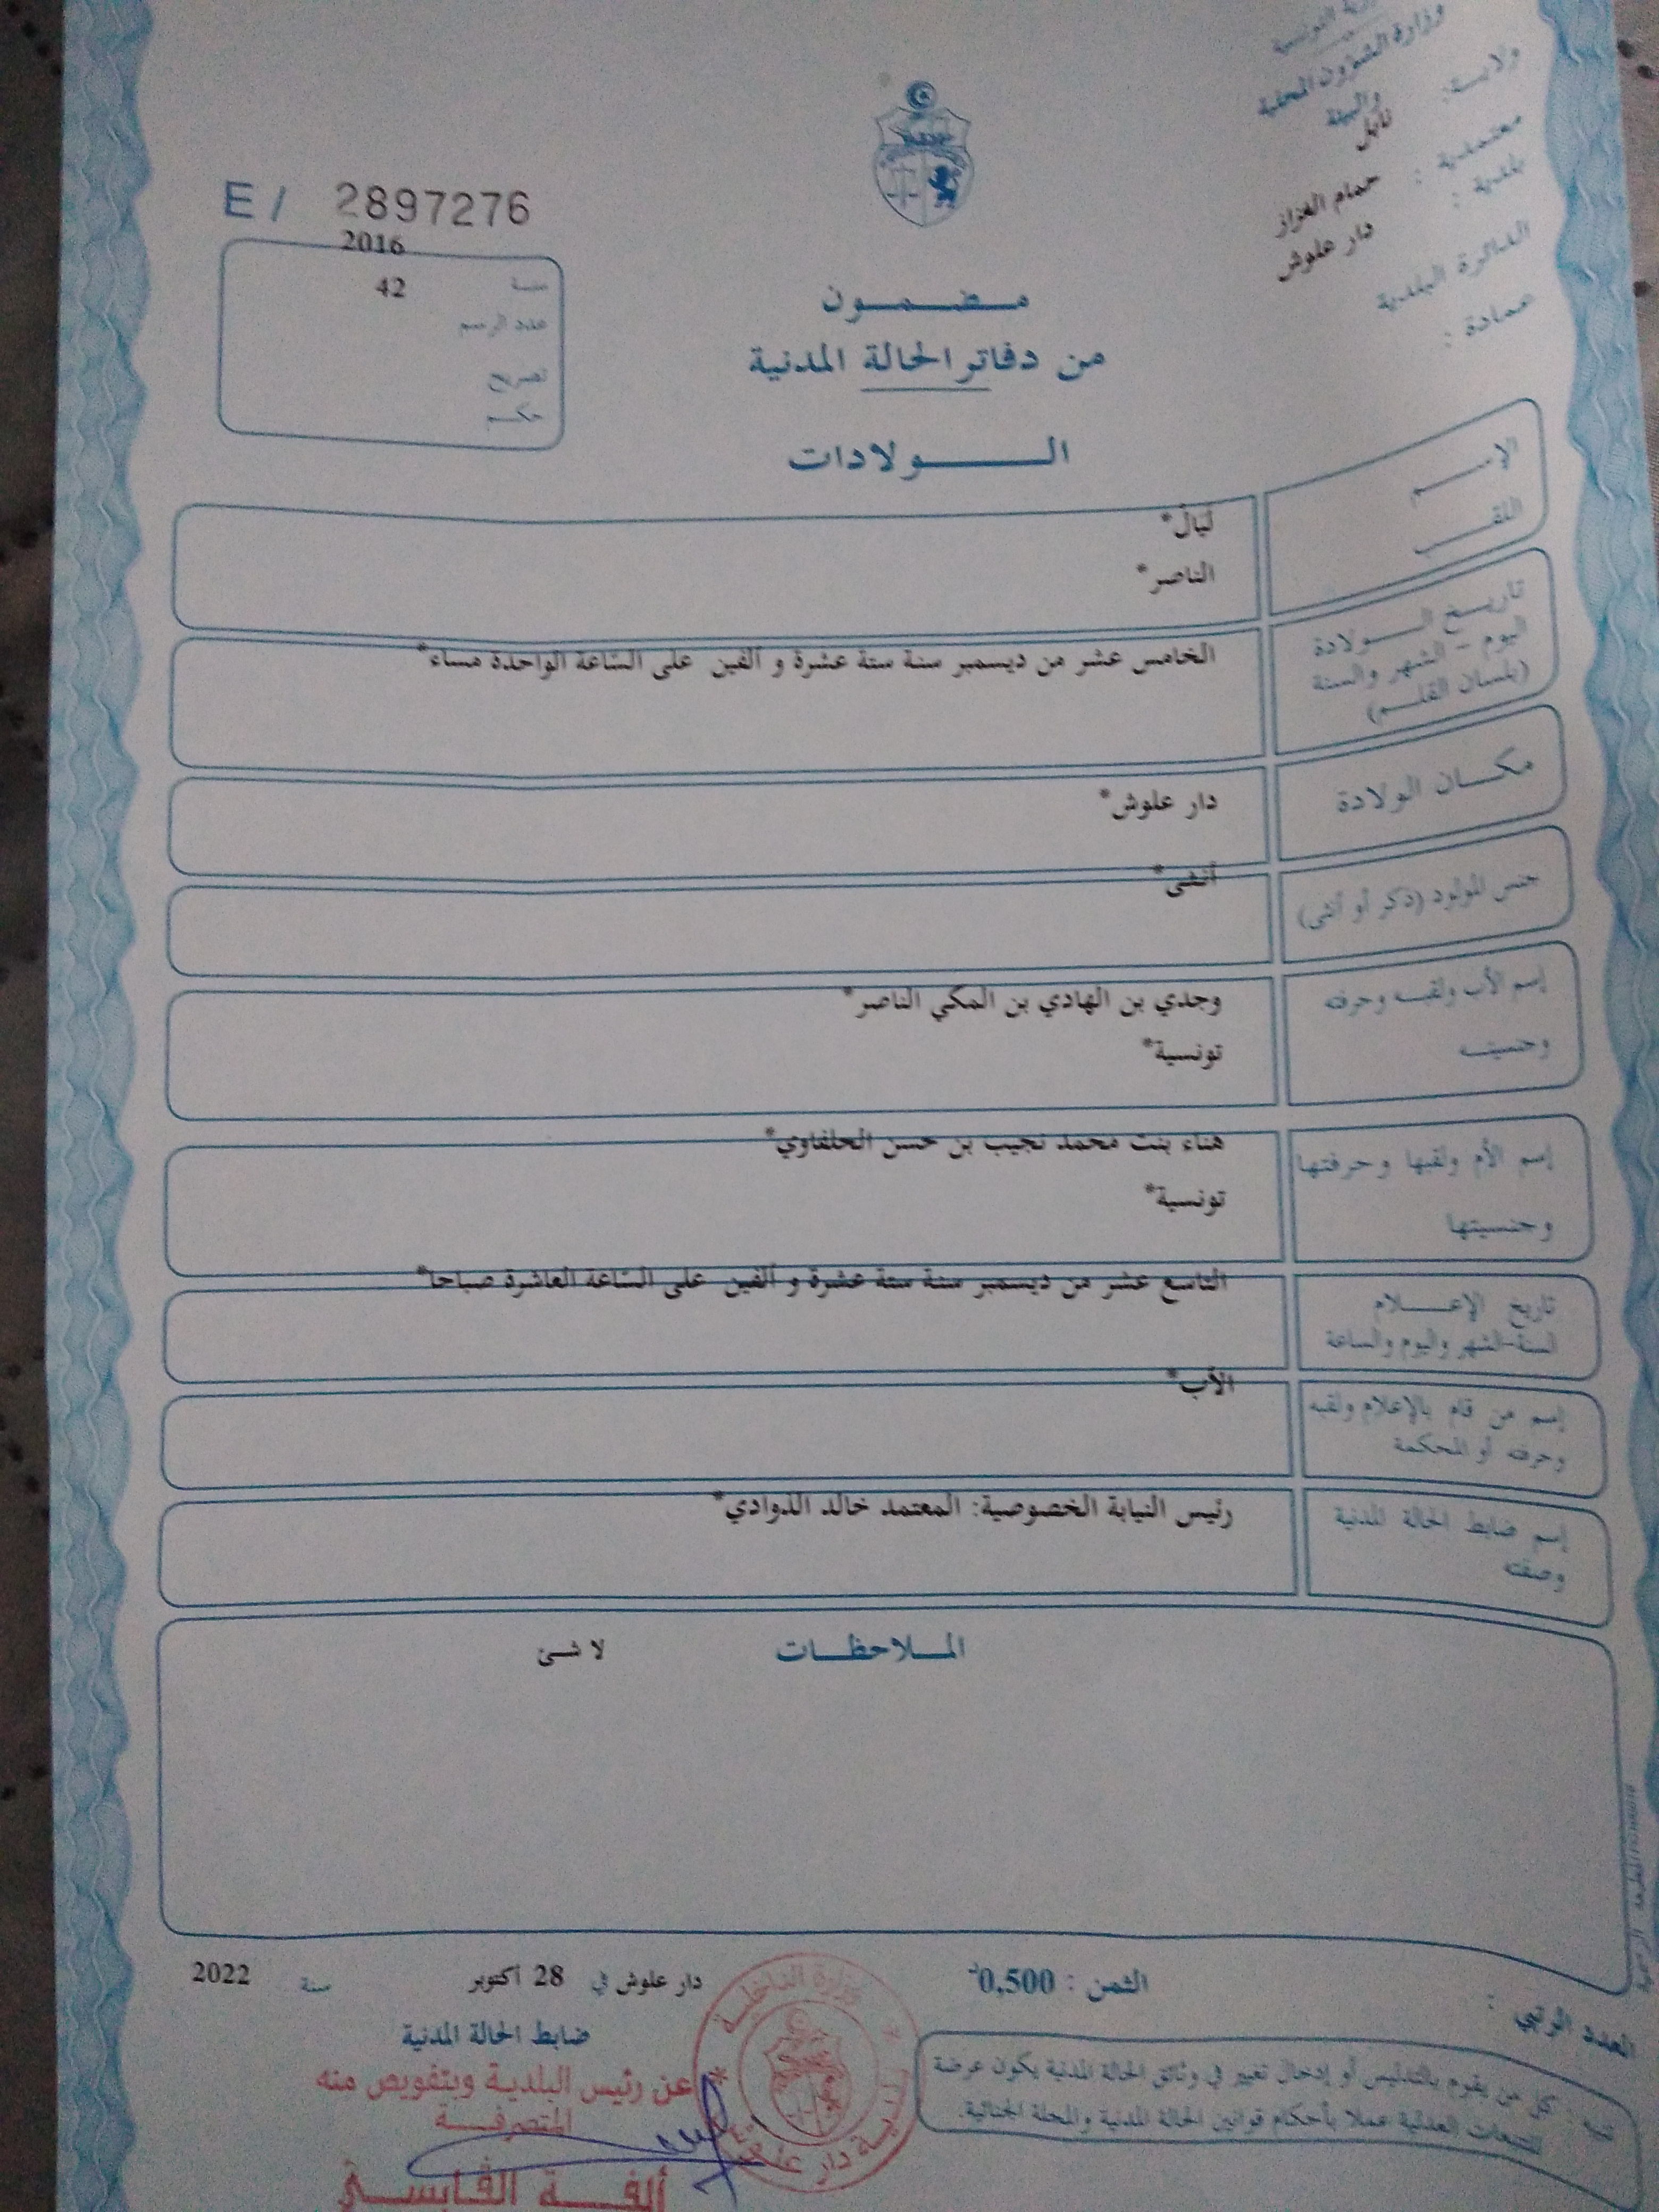 وزارة الشؤون المحلية
والبيئة
ولايـــة: نابل
معتمدية : حمام الغزاز
بلدية : دار علوش
الدائرة البلدية
عمادة :
E / 2897276
سنة 2016
عدد الرسم 42
تصريح
حكم
مـضـمـون
من دفاتر الحالة المدنية
الـولادات
الإسـم ليال*
اللقـب الناصر*
تاريـخ الـولادة
اليوم - الشهر والسنة
(بلسان القلـم)
الخامس عشر من ديسمبر سنة ستة عشرة و ألفين على الساعة الواحدة مساء*
مكـان الولادة دار علوش*
جنس المولود (ذكر أو أنثى) أنثى*
إسم الأب ولقبـه وحرفته وجدي بن الهادي بن المكي الناصر*
وجنسيتـه تونسية*
إسم الأم ولقبها وحرفتها هناء بنت محمد نجيب بن حسن الحلفاوي*
وجنسيتها تونسية*
تاريخ الإعـلام التاسع عشر من ديسمبر سنة ستة عشرة و ألفين على الساعة العاشرة صباحا*
السنة-الشهر واليوم والساعة
إسم من قام بالإعلام ولقبه الأب*
وحرفته أو المحكمة
إسم ضابط الحالة المدنية رئيس النيابة الخصوصية: المعتمد خالد الذوادي*
وصفته
المـلاحظـات لا شئ
الثمن : 0,500د
دار علوش في 28 أكتوبر سنة 2022
العدد الرتبي :
ضابط الحالة المدنية
عن رئيس البلدية وبتفويض منه
المتصرفـة
ألفـة القابسـي
تنبيه : كل من يقوم بالتدليس أو إدخال تغيير في وثائق الحالة المدنية يكون عرضة
للتتبعات العدلية عملا بأحكام قوانين الحالة المدنية والمجلة الجنائية.
وزارة الداخليـة